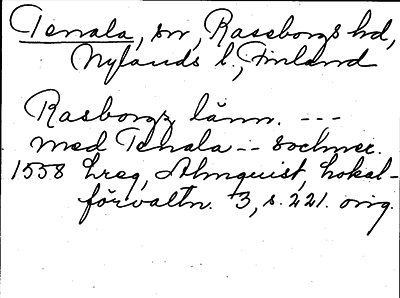 Tenala, sn, Raseborgs hd,
Nylands l., Finland
Rasborgz länn. ---
med Tenala -- sochner.
1558 Lreg, Almquist, Lokal-
förvaltn. 3, s. 221. orig.